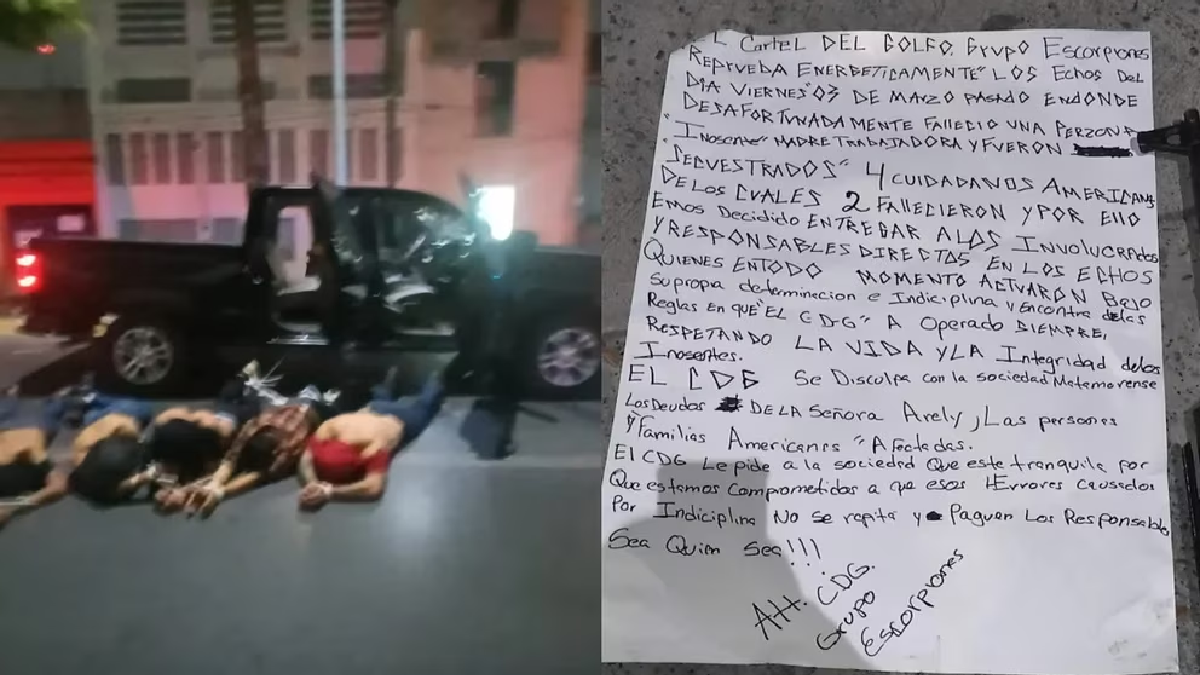 EL Cartel DEL GOLFO, Grupo Escorpiones
REPRUEBA ENERGETICAMENTE" LOS Echos DEL
DIA VIERNES "03 DE MARZO PASADO ENDONDE
DESAFORTUNADAMENTE FALLECIO UNA PERZONA
"INOSENTE" MADRE TRABAJADORA Y FUERON
SECUESTRADOS" 4 CUIDADANOS AMERICANS
DE LOS CUALES 2 FALLECIERON Y POR ELLO
EMOS DECIDIDO ENTREGAR A LOS INVOLUCRADOS
Y RESPONSABLES DIRECTOS EN LOS ECHOS
QUIENES EN TODO MOMENTO ACTUARON BAJO
su propia determinacion e Indiciplina y encontra delas
Reglas en que "EL CDG" A Operado SIEMPRE,
RESPETANDO LA VIDA Y LA Integridad de los
Inosentes.
EL CDG Se Discolpa con la sociedad Matemorense
Los Deudos DE LA Señora Arely, Las personas
y familias Americanas "Afectadas.
El CDG Le pide a la sociedad Que este tranquila por
Que estamos Comprometidos a que esos Errores causados
Por Indiciplina No se repita y Paguen Los Responsables
Sea Quien Sea!!!
Att. CDG.
Grupo
Escorpiones